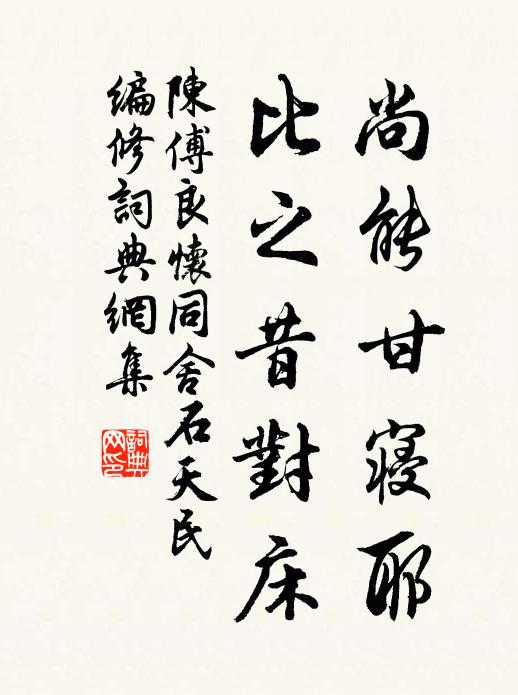 尚能甘寢耶
比之昔對床
陳傅良懷同舍石天民
編修詞典網集
詞典網印